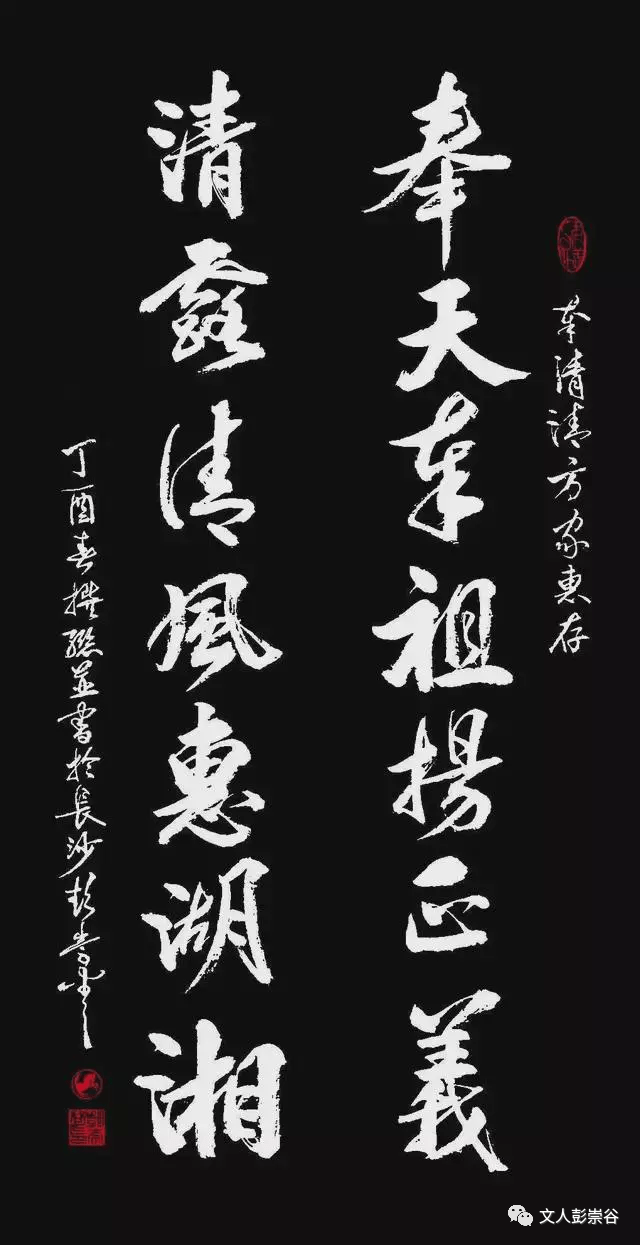 奉清清方家惠存
奉天奉祖揚正義
清露清風惠湖湘
丁酉春撰聯並書於長沙彭崇谷
文人彭崇谷